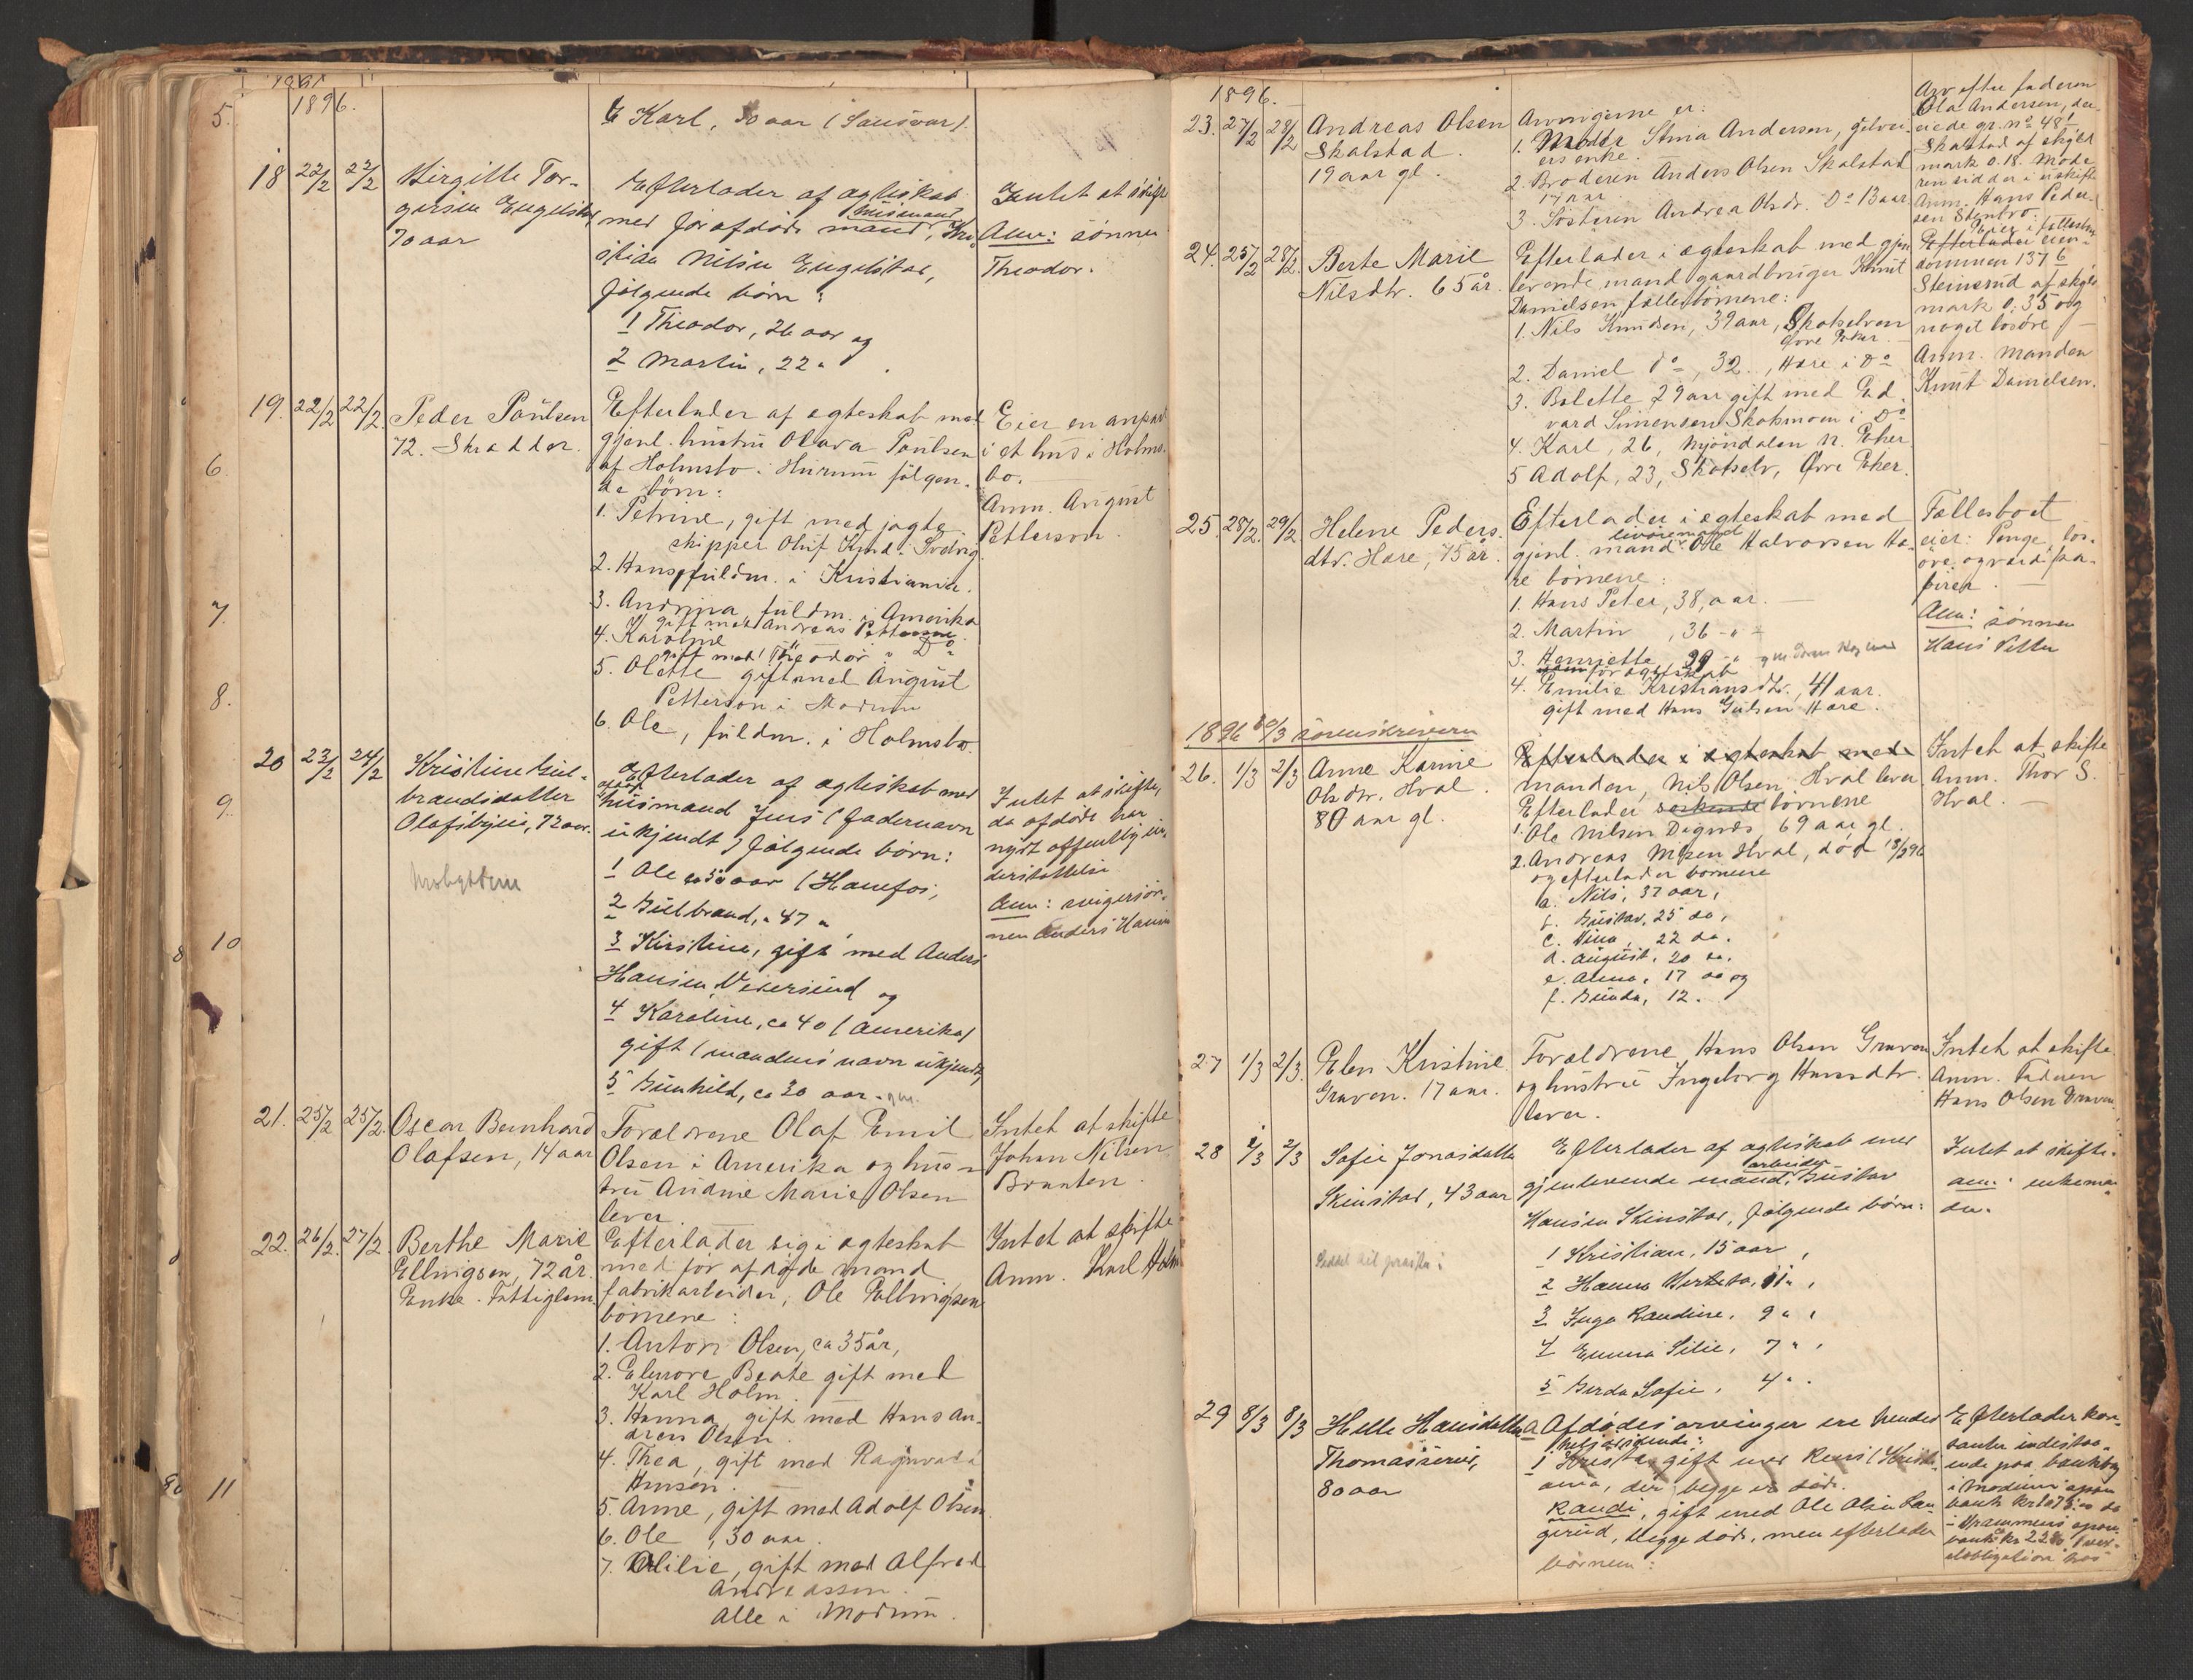 1896.
5.
6 Karl, 30 aar (Sandsvær).
18 22/2 22/2 Birgitte Tor-
gersen Engelstad
70 aar
Efterlader af ægteskab
med før afdøde husmand, Kri-
stian Nilsen Engelstad,
følgende børn:
1 Theodor, 26 aar og
2 Martin, 22 "
Intet at skifte
Anm: sønnen
Theodor.
19. 22/2 22/2. Peder Paulsen
72. Skrædder.
Efterlader af egteskab med
gjenl. hustru Olava Paulsen
af Holmsbo i Hurum følgen-
de børn:
1. Petrine, gift med jagte-
skipper Oluf Knud. Svelvig
2. Hans, fuldm. i Kristiania.
3. Andrina, fuldm. i Amerika
gift med Andreas Petterson
4. Karoline
gift med Theodor " Do
5. Olette gift med August
Petterson i Modum
6. Ole, fuldm. i Holmsbo.
Eier en anpart
i et hus i Holms-
bo.
Anm. August
Petterson.
6.
7.
8.
9.
10
11
20 23/2 24/2 Kristine Gul-
brandsdatter
Olafsbyen, 72 aar.
Efterlader af ægteskab med
husmand Jens (fadernavn
ukjendt) følgende børn:
1 Ole ca 50 aar (Hønefos,
2 Gulbrand, " 47 "
3 Kirstine, gift med Anders
Hansen, Vikersund og
4 Karoline, ca 40 (Amerika)
gift (mandens navn ukjendt,
5 Gunhild, ca 30 aar. gm.
Intet at skifte,
da afdøde har
nydt offentlig un-
derstøttelse
Anm: svigersøn-
nen Anders Hansen
21. 25/2 25/2. Oscar Bernhard
Olafsen, 14 aar
Forældrene Olaf Emil
Olsen i Amerika og hus-
tru Andine Marie Olsen
lever
Intet at skifte
Johan Nilsen
Braaten.
22. 26/2. 27/2. Berthe Marie
Ellingsen, 72 år.
Enke. Fattiglem.
Efterlader sig i ægteskab
med før afdøde mand
fabrikarbeider, Ole Ellingsen
børnene:
1. Anton Olsen, ca 35 år,
2. Elenore Beate gift med
Karl Holm.
3. Hanna, gift med Hans An-
dreas Olsen.
4. Thea, gift med Ragnvald
Hansen.
5. Anne, gift med Adolf Olsen
6. Ole, 30 aar.
7. Olilie, gift med Alfred
Andreassen.
Alle i Modum.
Intet at skifte
Anm. Karl Holm
1896.
23. 27/2 28/2 Andreas Olsen
Skalstad.
19 aar gl.
Arvingerne er:
1. Moder Stina Andersen, selvei-
ers enke.
2. Broderen Anders Olsen Skalstad
17 aar.
3. Søsteren Andrea Olsdr. Do 13 aar.
Arv efter faderen
Ola Andersen, der
eiede gr. no 48/1
Skalstad af skyld
mark 0.18. Mode-
ren sidder i uskifte
Anm. Hans Peder-
sen Stenbro.
24. 25/2 28/2. Berte Marie
Nilsdtr. 65 år.
Efterlader i egteskab med gjen-
levende mand gaardbruger Knut
Danielsen fællesbørnene:
1. Nils Knudsen, 39 aar, Skotselven
Øvre Eker.
2. Daniel do, 32, Hære i Do
3. Bolette 29 aar gift med Ed-
vard Simensen Skotsmoen i Do
4. Karl, 26, Mjøndalen N. Eker
5 Adolf, 23, Skotselv, Øvre Eker.
Efterlader eien-
dommen 137/6
Steinsrud af skyld
mark 0.35 og
noget løsøre.
Anm. Manden
Knut Danielsen.
25. 28/2. 29/2 Helene Peders-
dtr. Hære, 75 år.
Efterlader i egteskab med
gjenl. mand Ole Halvorsen Hæ-
re børnene:
1. Hans Peter, 38, aar.
2. Martin, 36 - " -
3. Henriette 29 - "
før ægteskab
4. Emilie Kristiansdtr., 41 aar.
gift med Hans Gulsen Hære.
Fællesboet
eier: Penge, løs-
øre og værdipa-
pirer.
Anm: sønnen
Hans Petter
1896 20/3 sorenskriveren
26. 1/3 2/3 Anne Karine
Olsdtr. Hval.
80 aar gl.
Efterlader i egteskab med
manden, Nils Olsen Hval lever
Efterlader børnene
1. Ole Nilsen Degnes, 69 aar gl.
2. Andreas Nilsen Hval, død
og efterlader børnene
a. Nils, 37 aar,
b. Gustav, 25 do,
c. Nina, 22 do.
d. August, 20 do.
e. Anna, 17 do og
f. Gunda, 12.
Intet at skifte
Anm. Thor S.
Hval.
27 1/3 2/3. Elen Kristine
Graven. 17 aar.
Forældrene Hans Olsen Graven
og hustru Ingeborg Hansdtr.
lever.
Intet at skifte
Anm. Faderen
Hans Olsen Graven
28 2/3 2/3 Sofie Jonasdatter
Skinstad, 43 aar
Efterlader af ægteskab med
gjenlevende mand, arbeider Gustav
Hansen Skinstad, følgende børn:
1 Kristian, 15 aar,
2 Hanna Berteba, 11 ",
3 Inga Randine, 9 ",
4 Emma Silie, 7 ",
5 Gerda Sofie, 4 "
Intet at skifte.
anm.: enkeman-
den.
29 8/3 8/3 Helle Hansdatter
Thomasserud,
80 aar
a Afdødes arvinger ere hendes
helsøskende:
1 Kristi, gift med Knud (Kristi-
ania, der begge er døde.
Randi, gift med Ole Olsen
gerud, begge døde, men efterlader
børnene:
Efterlader kon-
tanter indestaa-
ende paa bankbog
i Modums spare-
bank
i Drammens spare-
bank kr
obligation hos